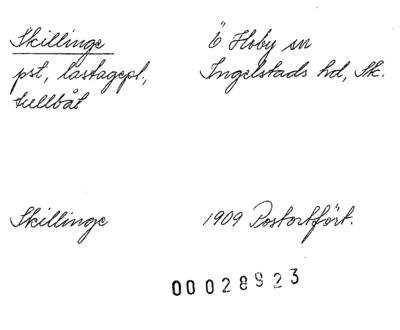 Skillinge
Ö Hoby sn
pst, lastagepl.,
Ingelstads hd, Sk.
tullbåt
Skillinge
1909 Postortfört.
00028923